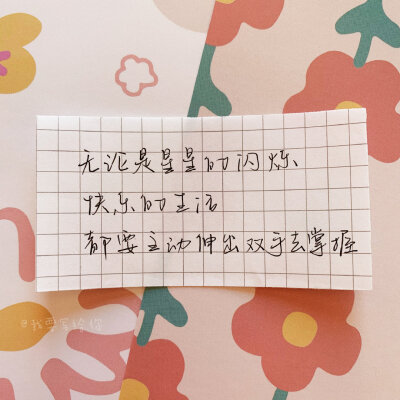 无论是星星的闪烁
快乐的生活
都要主动伸出双手去掌握
@我要写给你